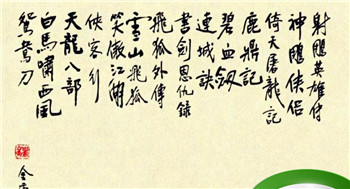 射鵰英雄传
神鵰俠侣
倚天屠龍記
鹿鼎記
碧血劔
連城訣
書劍恩仇錄
飛狐外傳
雪山飛狐
笑傲江湖
俠客行
天龍八部
白馬嘯西風
鴛鴦刀